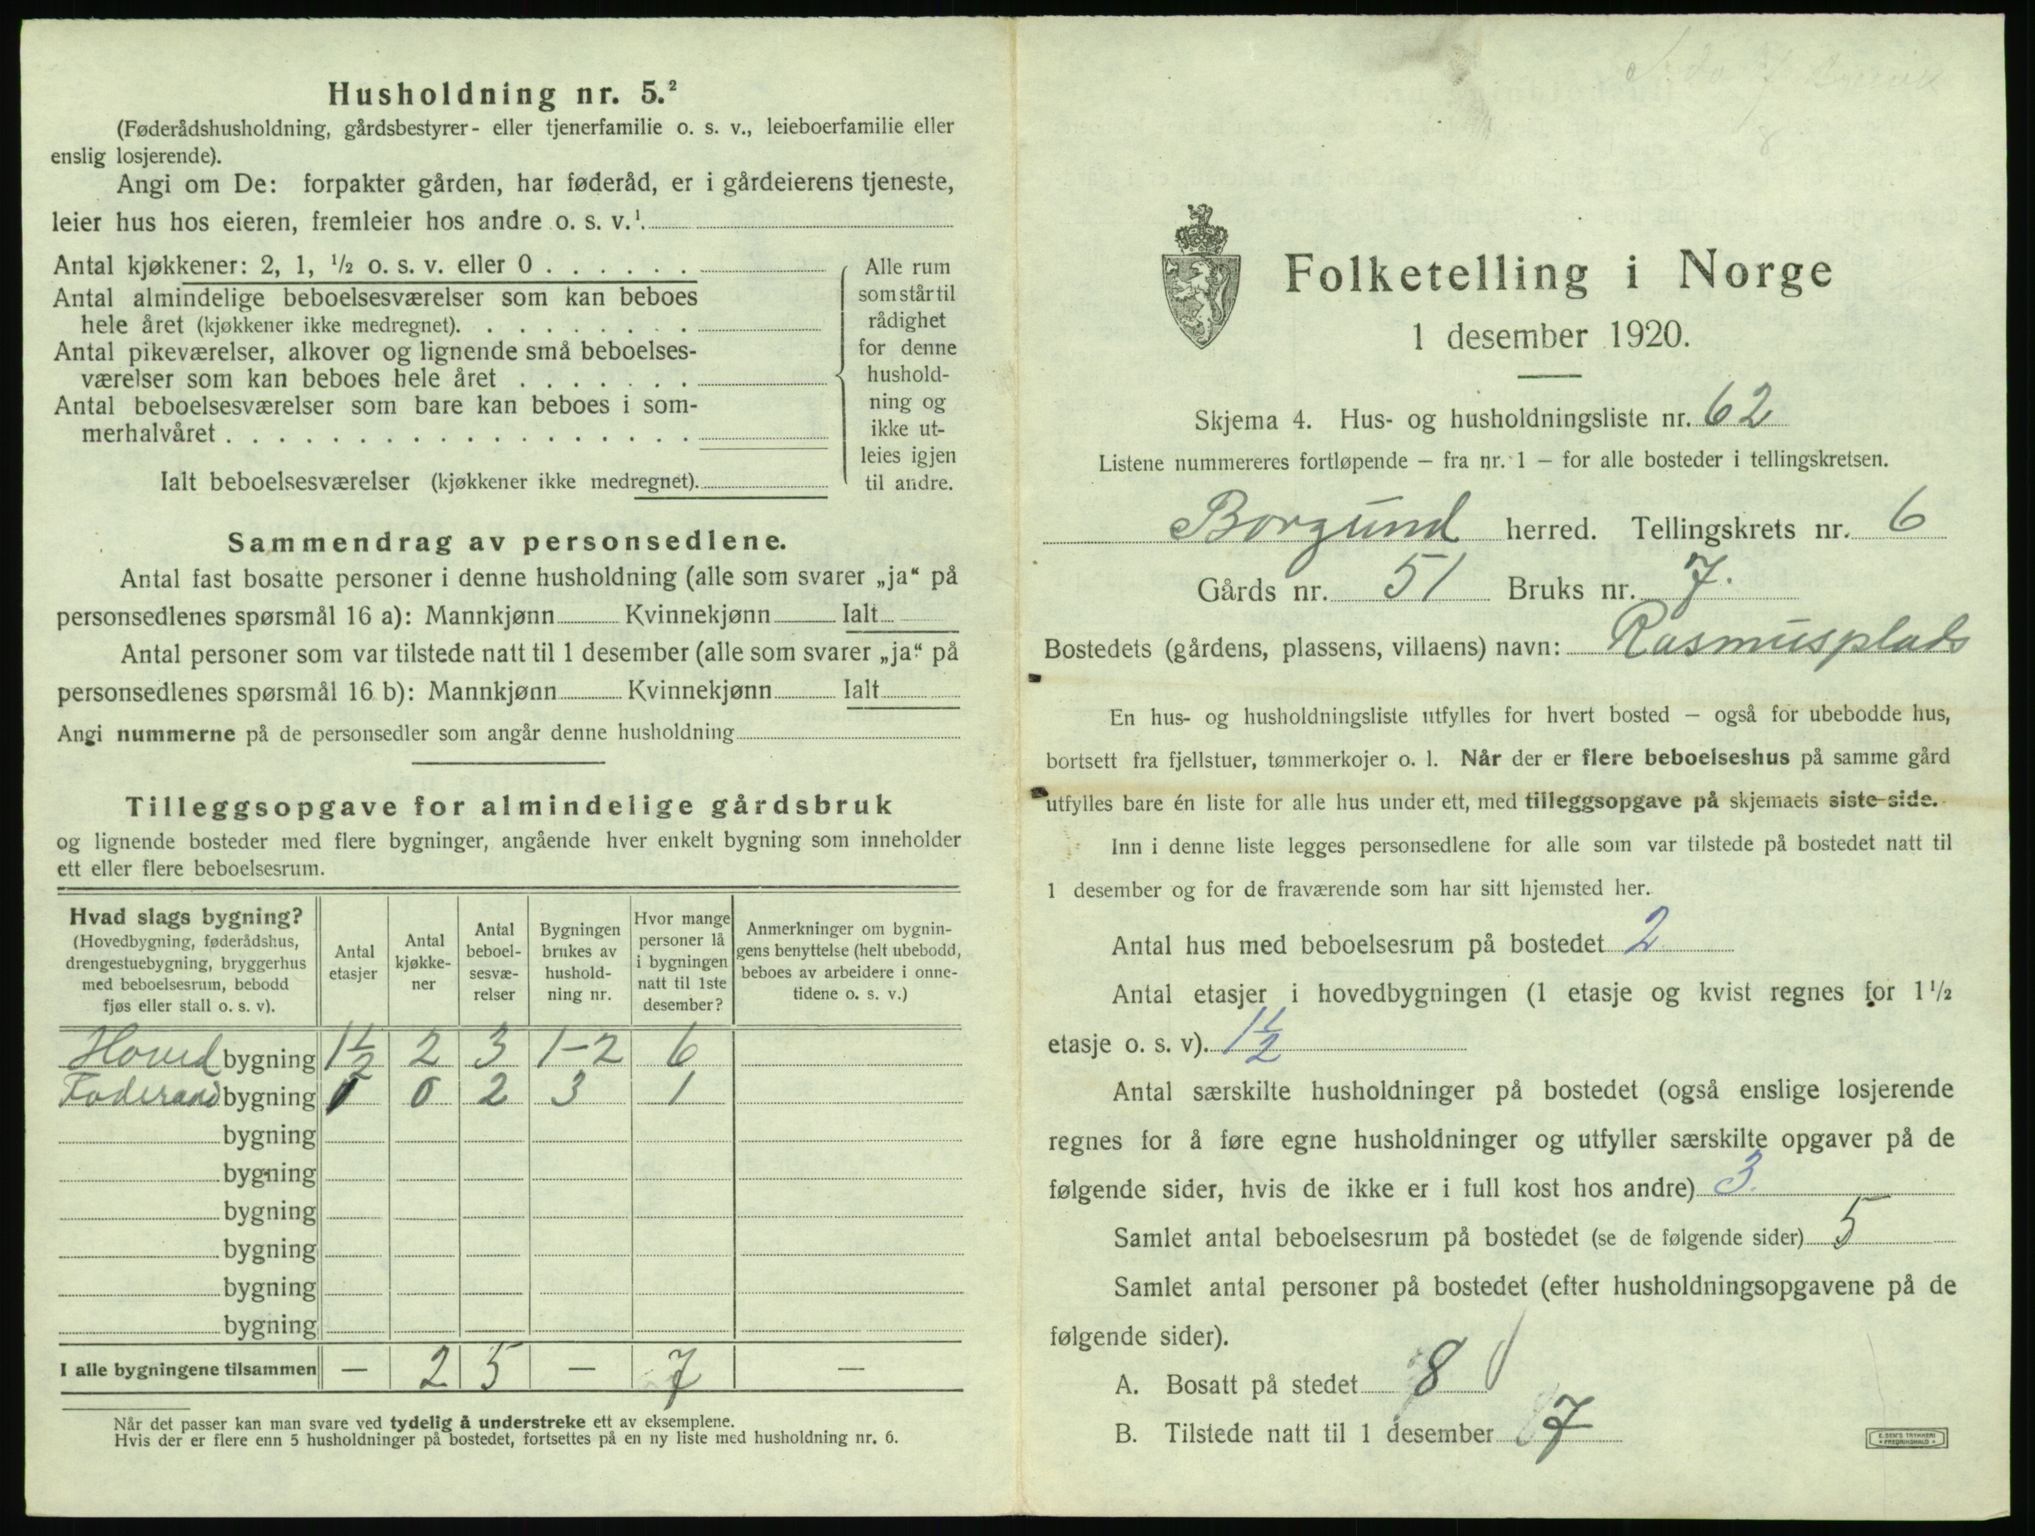 Husholdning nr. 5.²
(Føderådshusholdning, gårdsbestyrer- eller tjenerfamilie o. s. v., leieboerfamilie eller
enslig losjerende).
Angi om De: forpakter gården, har føderåd, er i gårdeierens tjeneste,
leier hus hos eieren, fremleier hos andre o. s. v.¹
Antal kjøkkener: 2, 1, ½ o. s. v. eller 0
Antal almindelige beboelsesværelser som kan beboes
hele året (kjøkkener ikke medregnet).
Antal pikeværelser, alkover og lignende små beboelses-
værelser som kan beboes hele året
Antal beboelsesværelser som bare kan beboes i som-
merhalvåret
Ialt beboelsesværelser (kjøkkener ikke medregnet).
Alle rum
som står til
rådighet
for denne
hushold-
ning og
ikke ut-
leies igjen
til andre.
Sammendrag av personsedlene.
Antal fast bosatte personer i denne husholdning (alle som svarer „ja“ på
personsedlenes spørsmål 16 a): Mannkjønn Kvinnekjønn Ialt
Antal personer som var tilstede natt til 1 desember (alle som svarer „ja“ på
personsedlenes spørsmål 16 b): Mannkjønn Kvinnekjønn Ialt
Angi nummerne på de personsedler som angår denne husholdning
Tilleggsopgave for almindelige gårdsbruk
og lignende bosteder med flere bygninger, angående hver enkelt bygning som inneholder
ett eller flere beboelsesrum.
Hvad slags bygning?
(Hovedbygning, føderådshus,
drengestuebygning, bryggerhus
med beboelsesrum, bebodd
fjøs eller stall o. s. v).
Antal
etasjer
Antal
kjøkke-
ner
Antal
beboel-
sesvæ-
relser
Bygningen
brukes av
hushold-
ning nr.
Hvor mange
personer lå
i bygningen
natt til 1ste
desember?
Anmerkninger om bygnin-
gens benyttelse (helt ubebodd,
beboes av arbeidere i onne-
tidene o. s. v.)
Hoved bygning 1½ 2 3 1-2 6
Føderaad bygning 1 0 2 3 1
bygning
bygning
bygning
bygning
bygning
bygning
I alle bygningene tilsammen — 2 5 — 7 —
Når det passer kan man svare ved tydelig å understreke ett av eksemplene.
Hvis der er flere enn 5 husholdninger på bostedet, fortsettes på en ny liste med husholdning nr. 6.
Folketelling i Norge
1 desember 1920.
Skjema 4. Hus- og husholdningsliste nr. 62
Listene nummereres fortløpende – fra nr. 1 – for alle bosteder i tellingskretsen.
Borgund herred. Tellingskrets nr. 6
Gårds nr. 51 Bruks nr. 7.
Bostedets (gårdens, plassens, villaens) navn: Rasmusplads
En hus- og husholdningsliste utfylles for hvert bosted – også for ubebodde hus,
bortsett fra fjellstuer, tømmerkojer o. l. Når der er flere beboelseshus på samme gård
utfylles bare én liste for alle hus under ett, med tilleggsopgave på skjemaets siste side.
Inn i denne liste legges personsedlene for alle som var tilstede på bostedet natt til
1 desember og for de fraværende som har sitt hjemsted her.
Antal hus med beboelsesrum på bostedet 2
Antal etasjer i hovedbygningen (1 etasje og kvist regnes for 1½
etasje o. s. v). 1½
Antal særskilte husholdninger på bostedet (også enslige losjerende
regnes for å føre egne husholdninger og utfyller særskilte opgaver på de
følgende sider, hvis de ikke er i full kost hos andre) 3.
Samlet antal beboelsesrum på bostedet (se de følgende sider) 5
Samlet antal personer på bostedet (efter husholdningsopgavene på de
følgende sider).
A. Bosatt på stedet 8
B. Tilstede natt til 1 desember 7
E. SEM'S TRYKKERI
FREDRIKSHALD